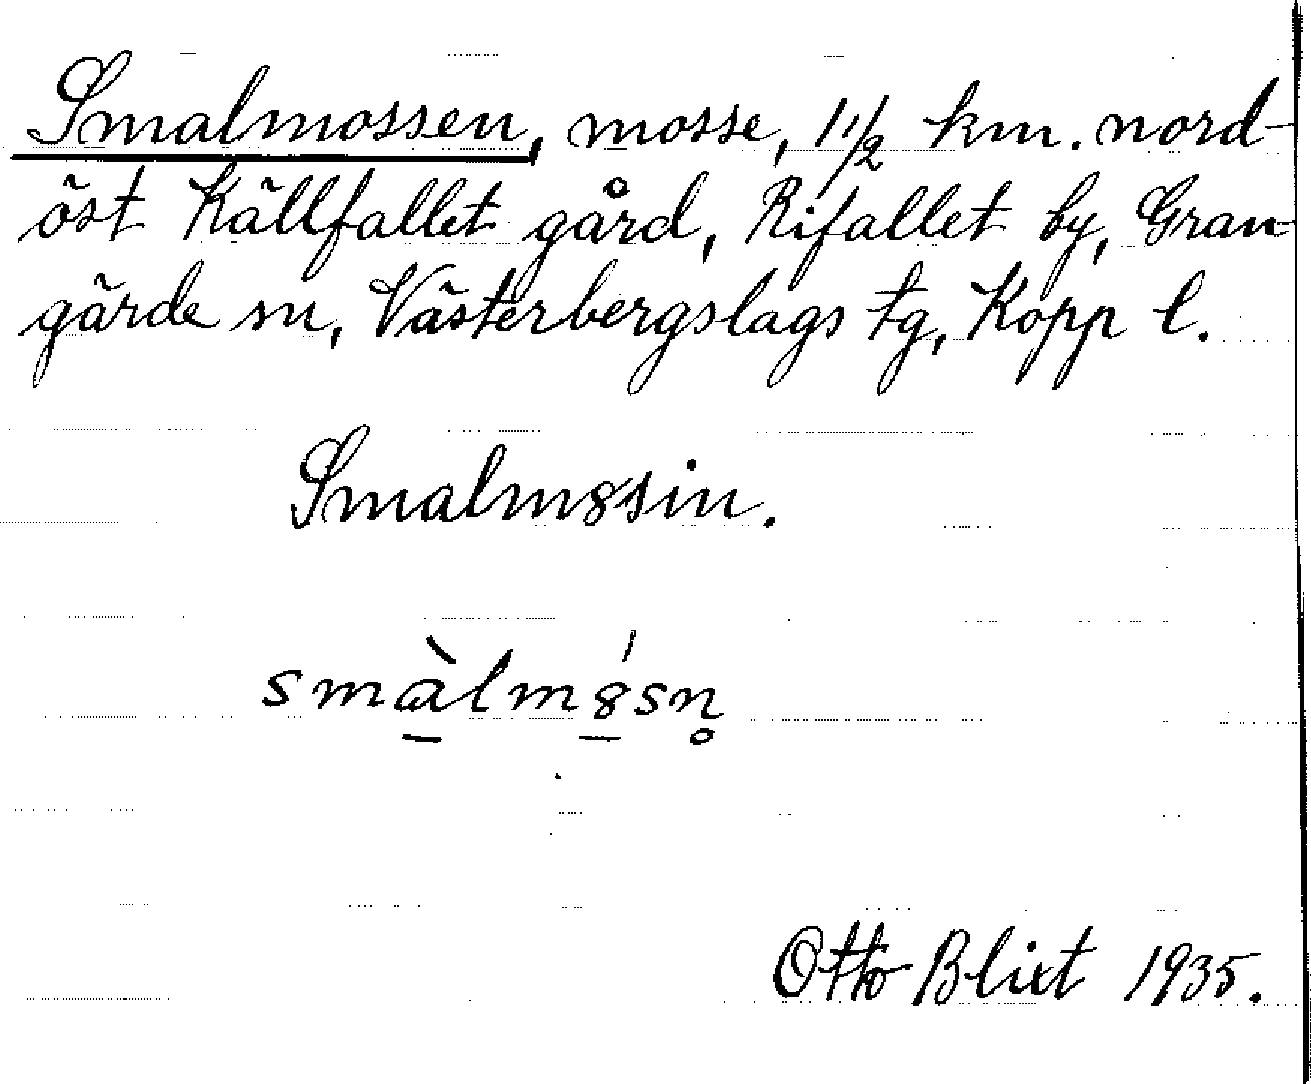 Smalmossen, mosse, 1 1/2 km. nord-
öst Källfallet gård, Rifallet by, Gran-
gärde sn, Västerbergslags tg, Kopp l.
Smalm8sin.
smàlm8́sn̥
Otto Blixt 1935.